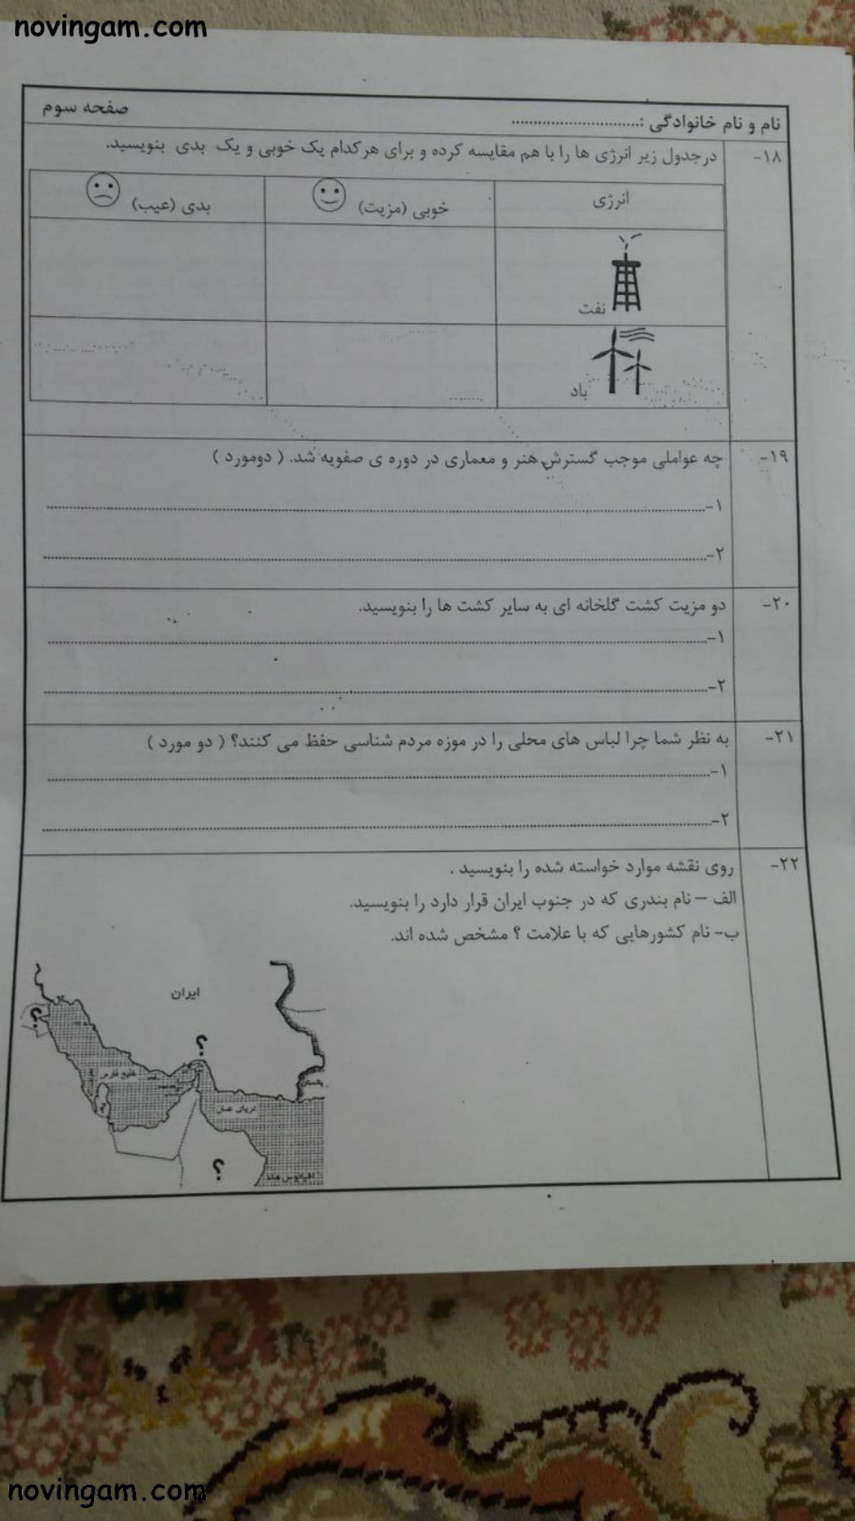 novingam.com
نام و نام خانوادگی :............................. صفحه سوم
۱۸- درجدول زیر انرژی ها را با هم مقایسه کرده و برای هرکدام یک خوبی و یک بدی بنویسید.
انرژی خوبی (مزیت) بدی (عیب)
نفت
باد
۱۹- چه عواملی موجب گسترش هنر و معماری در دوره ی صفویه شد. ( دومورد )
۱-
۲-
۲۰- دو مزیت کشت گلخانه ای به سایر کشت ها را بنویسید.
۱-
۲-
۲۱- به نظر شما چرا لباس های محلی را در موزه مردم شناسی حفظ می کنند؟ ( دو مورد )
۱-
۲-
۲۲- روی نقشه موارد خواسته شده را بنویسید .
الف – نام بندری که در جنوب ایران قرار دارد را بنویسید.
ب- نام کشورهایی که با علامت ؟ مشخص شده اند.
ایران
؟
؟
خلیج فارس
پاکستان
دریای عمان
؟
اقیانوس هند
novingam.com